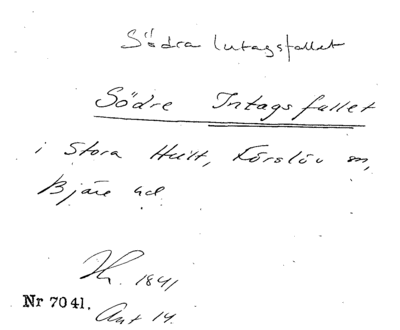 Södra Intagsfallet
Södre Intagsfallet
i Stora Hult, Förslöv sn,
Bjäre hd
1841
Nr 7041.
Akt 14.